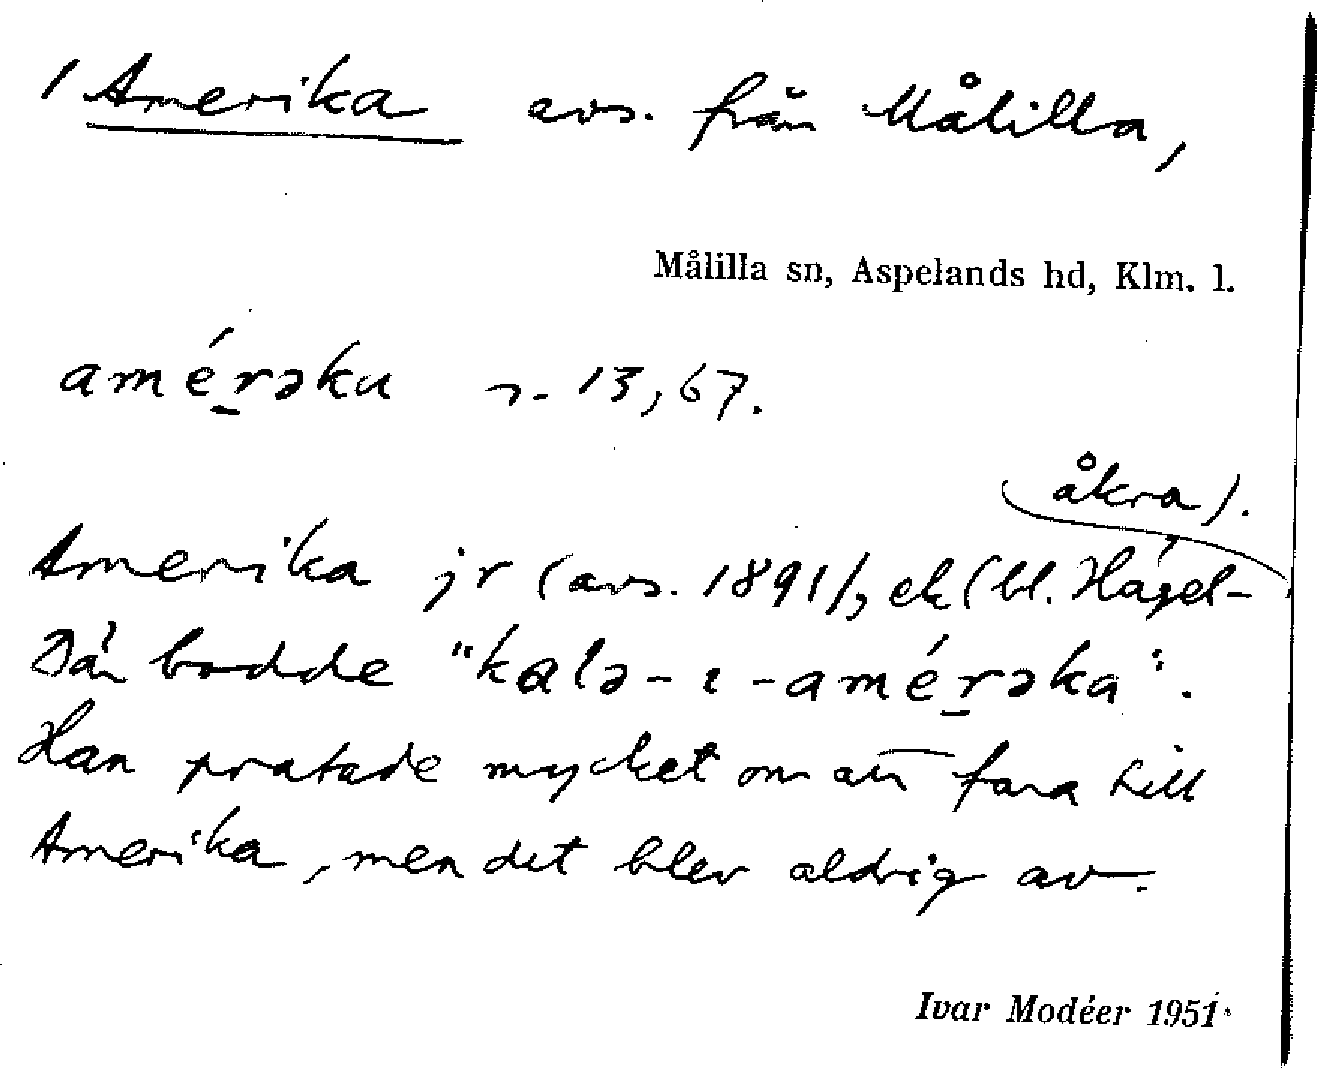 / Amerika avs. från Målilla,
Målilla sn, Aspelands hd, Klm. l.
améṟəku n. 13, 67.
åkra).
Amerika jr (avs. 1891), ek (bl. Hagel-
Där bodde "kalə-ı-améṟəka".
Han pratade mycket om att fara till
Amerika, men det blev aldrig av.
Ivar Modéer 1951.